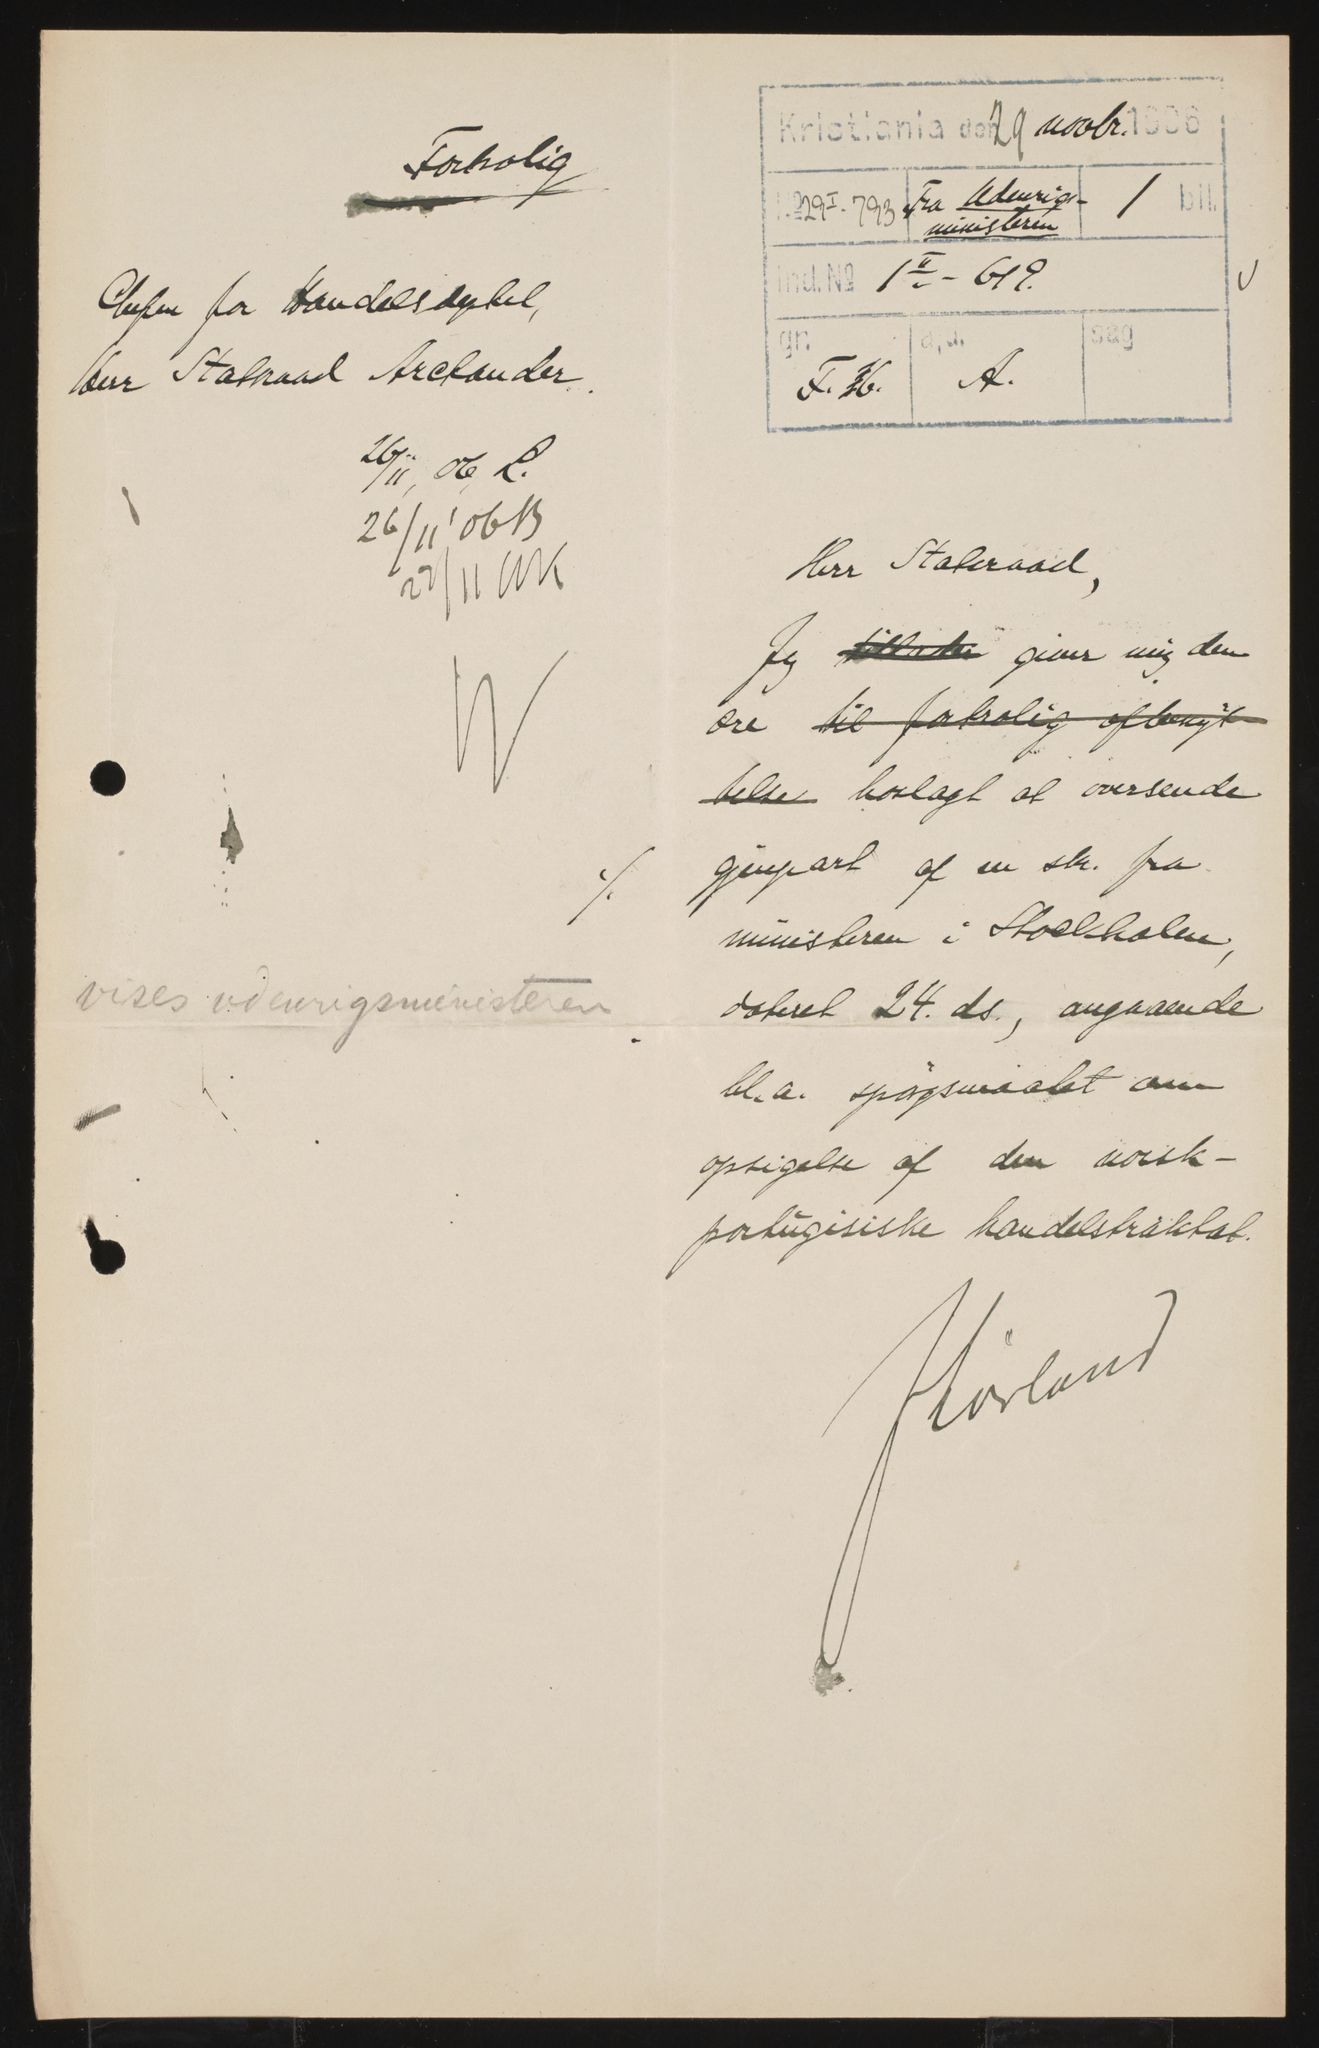 Fortrolig
Kristiania den 29 novbr. 1906
No 29I-793 Fra Udenrigs-
ministeren
1 bil.
Ind. No 1II-619.
gn. a, d. sag
F. H. A.
Chefen for Handelsdeptet,
Herr Statsraad Arctander.
26/11, 06, L.
26/11 '06 B
27/11
Herr Statsraad,
Jeg tillader giver mig den
ære til fortrolig afbenyt-
telse hoslagt at oversende
./. gjenpart af en skr. fra
ministeren i Stockholm,
vises udenrigsministeren
dateret 24. ds., angaaende
bl. a. spörgsmaalet om
opsigelse af den norsk-
portugisiske handelstraktat.
JLövland